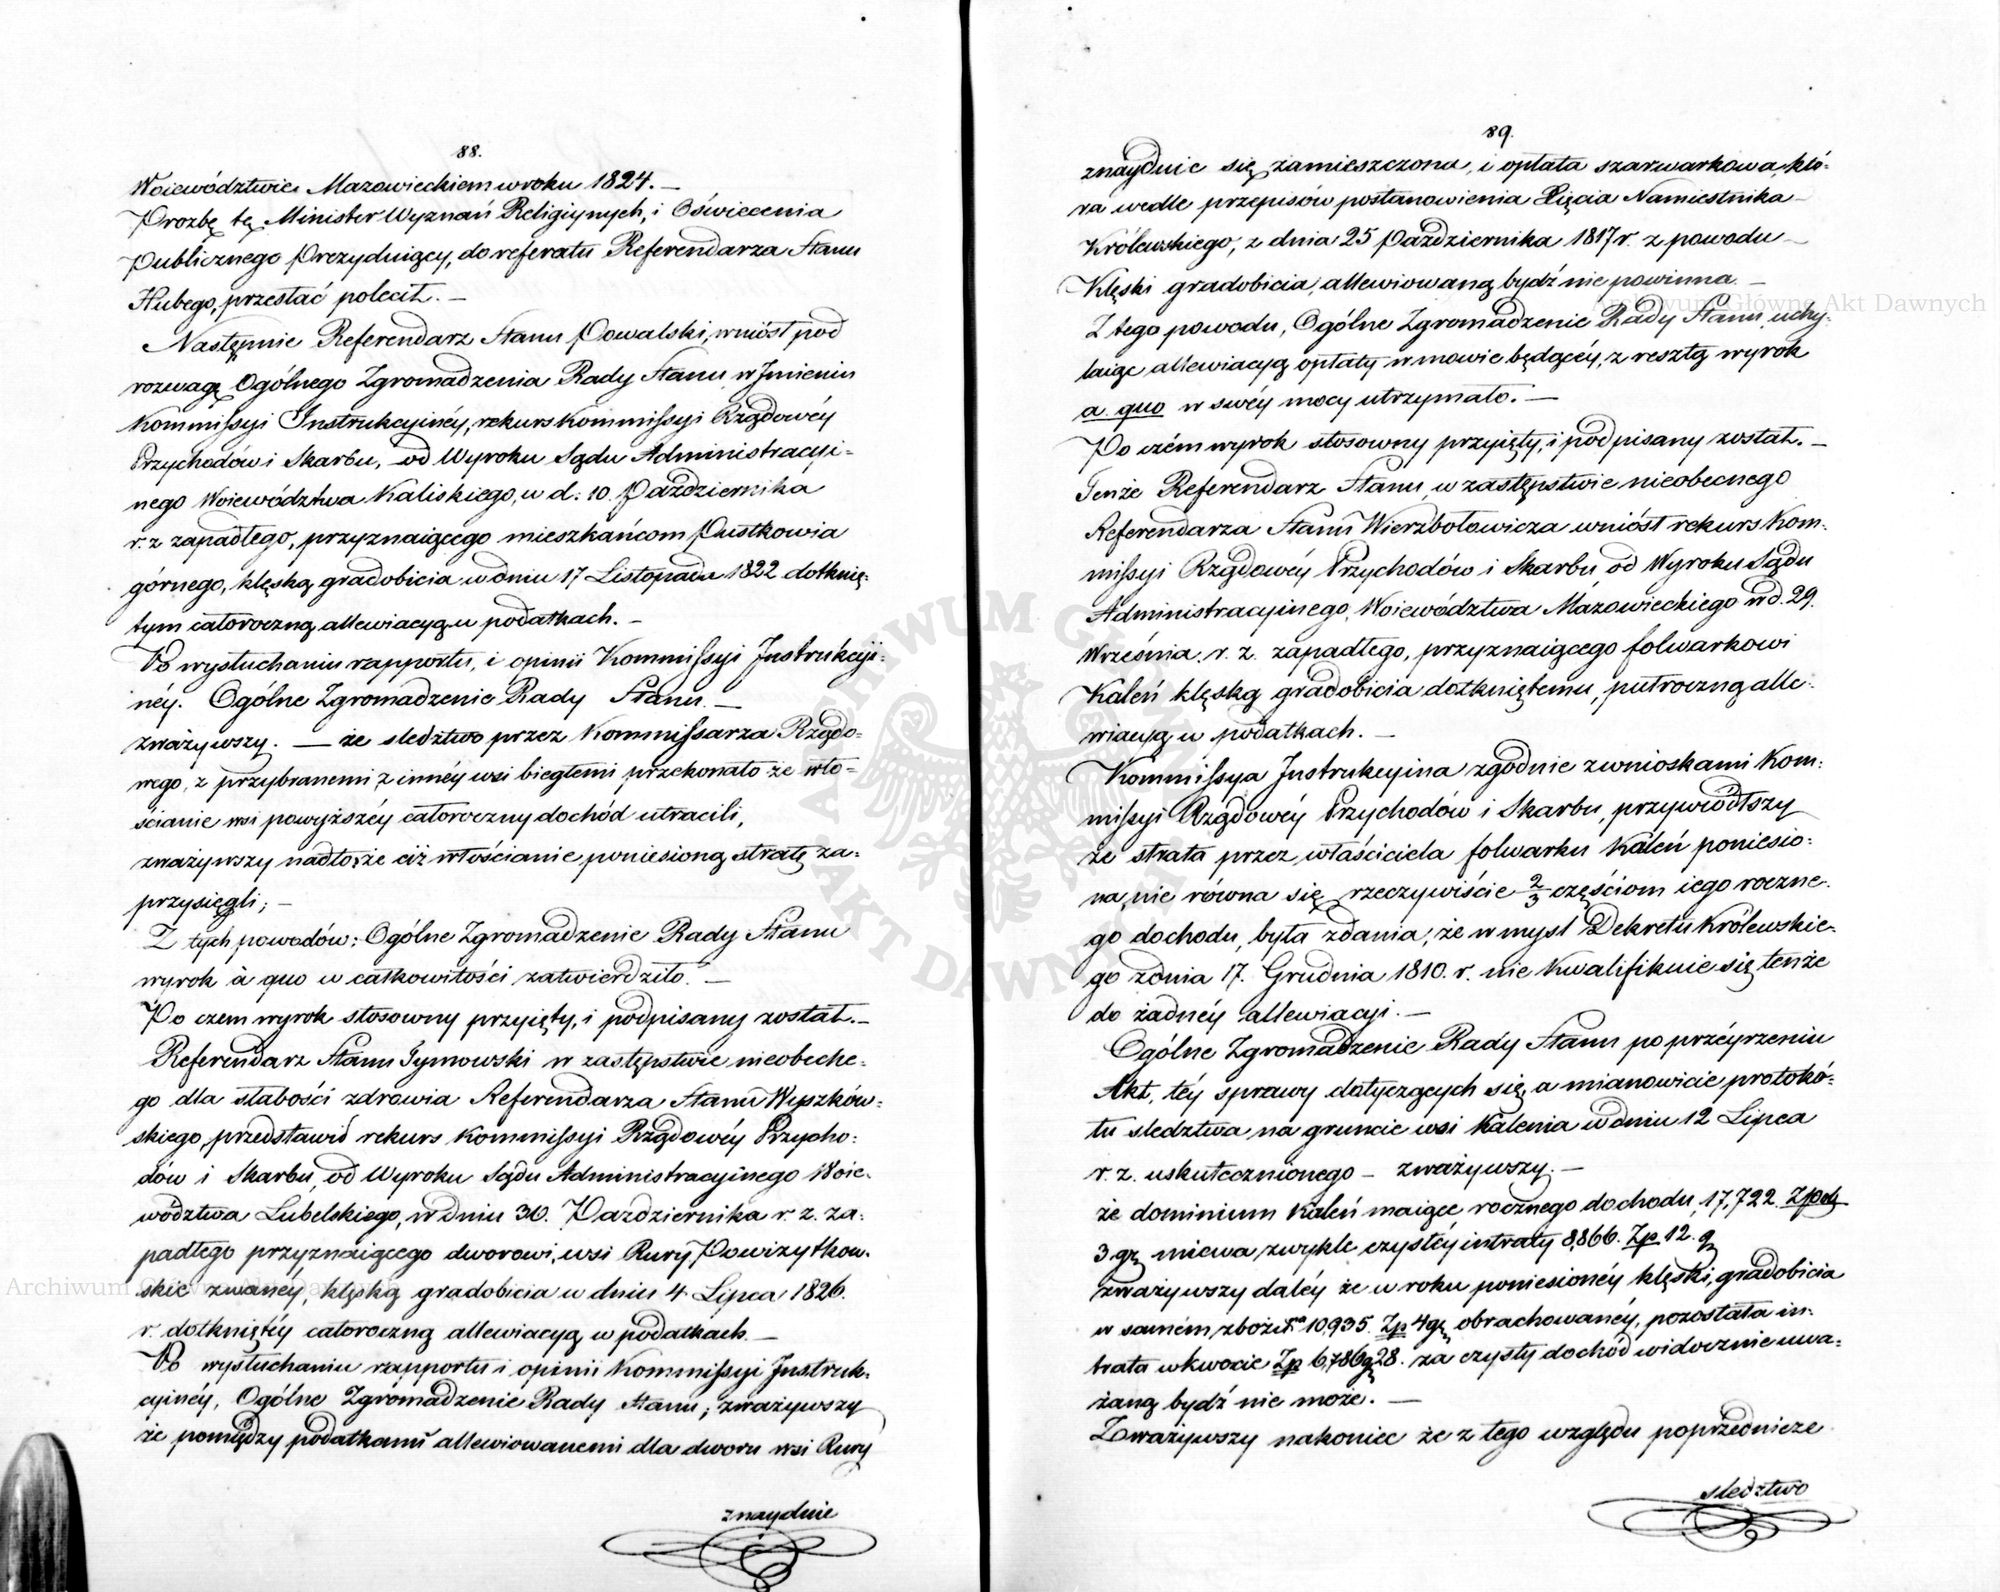 88.
Woiewództwie Mazowieckiem w roku 1824. —
Prozbę tę Minister Wyznań Religiynych, i Oświecenia
Publicznego Prezyduiący, do referatu Referendarza Stanu
Hubego, przesłać polecił. —
Następnie Referendarz Stanu Powalski, wniósł pod
rozwagę Ogólnego Zgromadzenia Rady Stanu w Jmieniu
Kommissyi Instrukcyinéy, rekurs Kommissyi Rządowéy
Przychodów i Skarbu, od Wyroku Sądu Administracyi-
nego Woiewództwa Kaliskiego, w d: 10. Października
r. z zapadłego, przyznaiącego mieszkańcom Pustkowia
górnego, klęską gradobicia w dniu 17 Listopada 1822 dotknię-
tym całoroczną allewiacyą w podatkach. —
Po wysłuchaniu rapportu, i opinii Kommissyi Instrukcyi-
néy. Ogólne Zgromadzenie Rady Stanu. —
zważywszy. — że sledztwo przez Kommissarza Rządo-
wego, z przybranemi z innéy wsi biegłemi przekonało że wło-
ścianie wsi powyższéy całoroczny dochód utracili,
zważywszy nadto, że ciż włościanie poniesioną stratę za-
przysięgli; —
Z tych powodów; Ogólne Zgromadzenie Rady Stanu
wyrok à quo w całkowitości zatwierdziło. —
Po czem wyrok stosowny przyięty, i podpisany został. —
Referendarz Stanu Tymowski w zastępstwie nieobecne-
go dla słabości zdrowia Referendarza Stanu Wyszków-
skiego, przedstawił rekurs Kommissyi Rządowéy Przycho-
dów i Skarbu, od Wyroku Sądu Administracyinego Woie-
wództwa Lubelskiego, w dniu 30. Października r. z. za-
padłego przyznaiącego dworowi, wsi Rury Powizytkow-
skie zwanéy, klęską gradobicia w dniu 4. Lipca 1826.
r. dotkniętéy całoroczną allewiacyą w podatkach. —
Po wysłuchaniu rapportu i opinii Kommissyi Instruk-
cyinéy, Ogólne Zgromadzenie Rady Stanu; zważywszy
że pomiędzy podatkami allewiowanemi dla dworu wsi Rury
znayduie
89.
znayduie się zamieszczona, i opłata szarwarkowa, któ-
ra wedle przepisów postanowienia Xięcia Namiestnika
Królewskiego, z dnia 25 Października 1817 r. z powodu
Klęski gradobicia, allewiowaną bydź nie powinna. —
Z tego powodu, Ogólne Zgromadzenie Rady Stanu, uchy-
laiąc allewiacyą opłaty w mowie będącéy, z resztą wyrok
a quo w swéy mocy utrzymało. —
Po czém wyrok stosowny przyięty, i podpisany został. —
Tenże Referendarz Stanu, w zastępstwie nieobecnego
Referendarza Stanu Wierzbołowicza wniósł rekurs Kom-
missyi Rządowéy Przychodów i Skarbu od Wyroku Sądu
Administracyinego, Woiewództwa Mazowieckiego w d. 29.
Września. r. z. zapadłego, przyznaiącego folwarkowi
Kaleń klęską gradobicia dotkniętemu, pułroczną alle-
wiacyą w podatkach. —
Kommissya Instrukcyina zgodnie z wnioskami Kom-
missyi Rządowéy Przychodów i Skarbu, przywiódłszy
że strata przez właściciela folwarku Kaleń poniesio-
na, nie równa się rzeczywiście 2/3 częściom iego roczne-
go dochodu, była zdania, że w mysl Dekretu Królewskie-
go z dnia 17. Grudnia 1810. r. nie kwalifikuie się tenże
do żadnéy allewiacyi. —
Ogólne Zgromadzenie Rady Stanu po przéyrzeniu
Akt, téy sprawy dotyczących się, a mianowicie protokó-
łu sledztwa na gruncie wsi Kalenia w dniu 12 Lipca
r. z. uskutecznionego — zważywszy. —
że dominium Kaleń maiące rocznego dochodu 17,722. Zpol
3. gr. miewa zwykle czystéy intraty 8,866. Zp 12. g
zważywszy daléy że w roku poniesionéy klęski, gradobicia
w samém zbożu na 10,935. Zp 4 gr obrachowanéy, pozostała in-
trata w kwocie Zp 6,786 g 28. za czysty dochód widocznie uwa-
żaną bydź nie może. —
Zważywszy nakoniec że z tego względu poprzednicze
sledztwo
Archiwum Główne Akt Dawnych
Archiwum Główne Akt Dawnych
ARCHIWUM GŁÓWNE AKT DAWNYCH